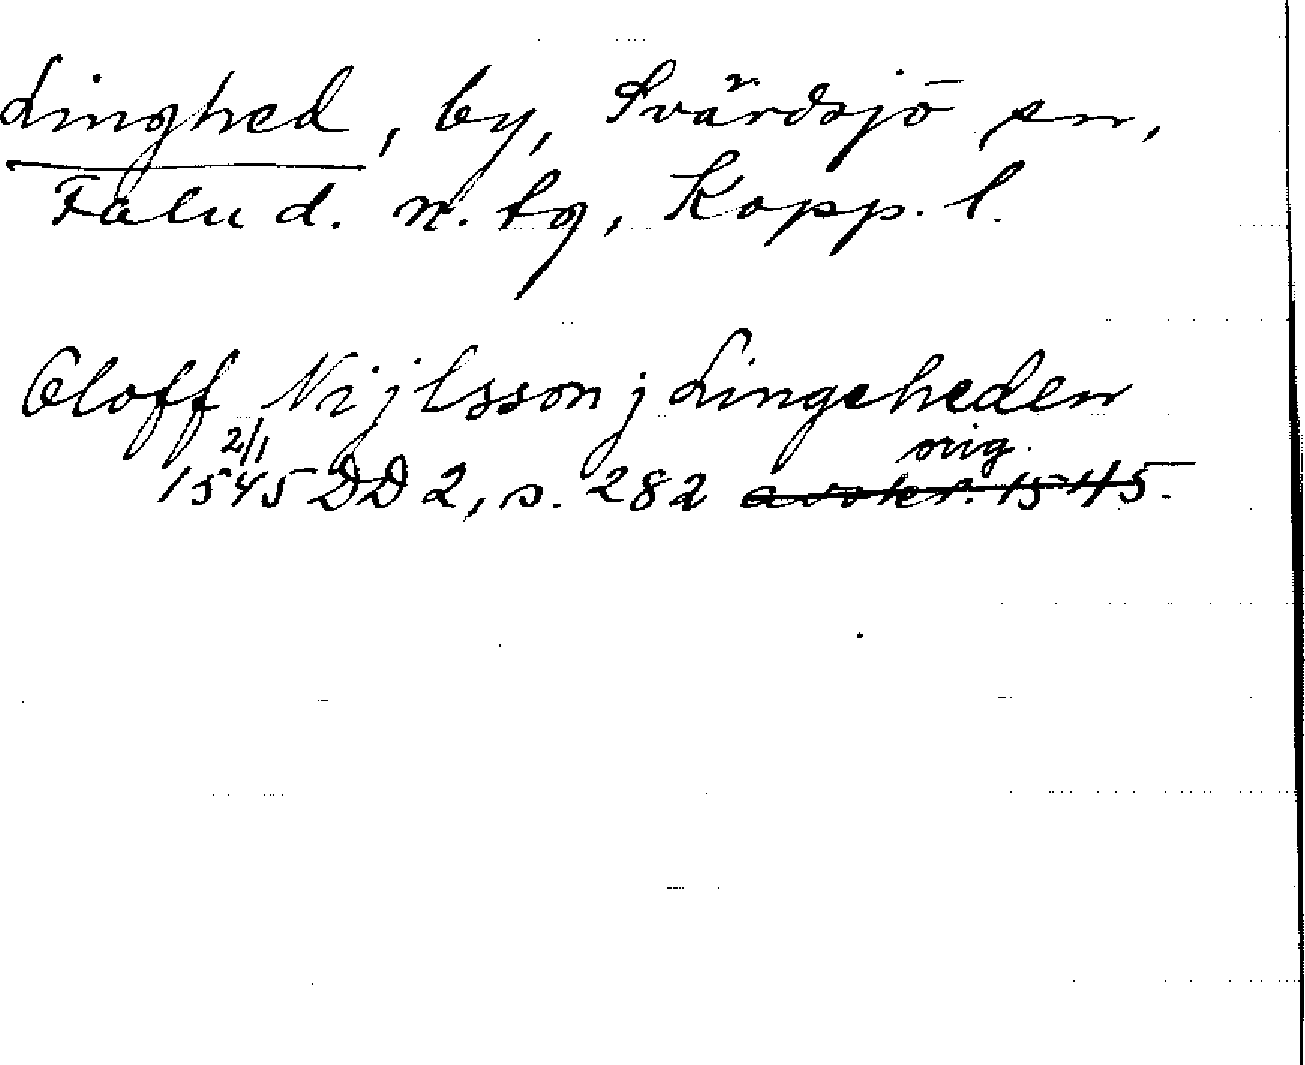 Linghed, by, Svärdsjö sn,
Falu d. n. tg, Kopp. l.
Oloff Nijlsson j Lingeheden
2/1 orig.
1545 DD 2, s. 282 avskr. 1545.